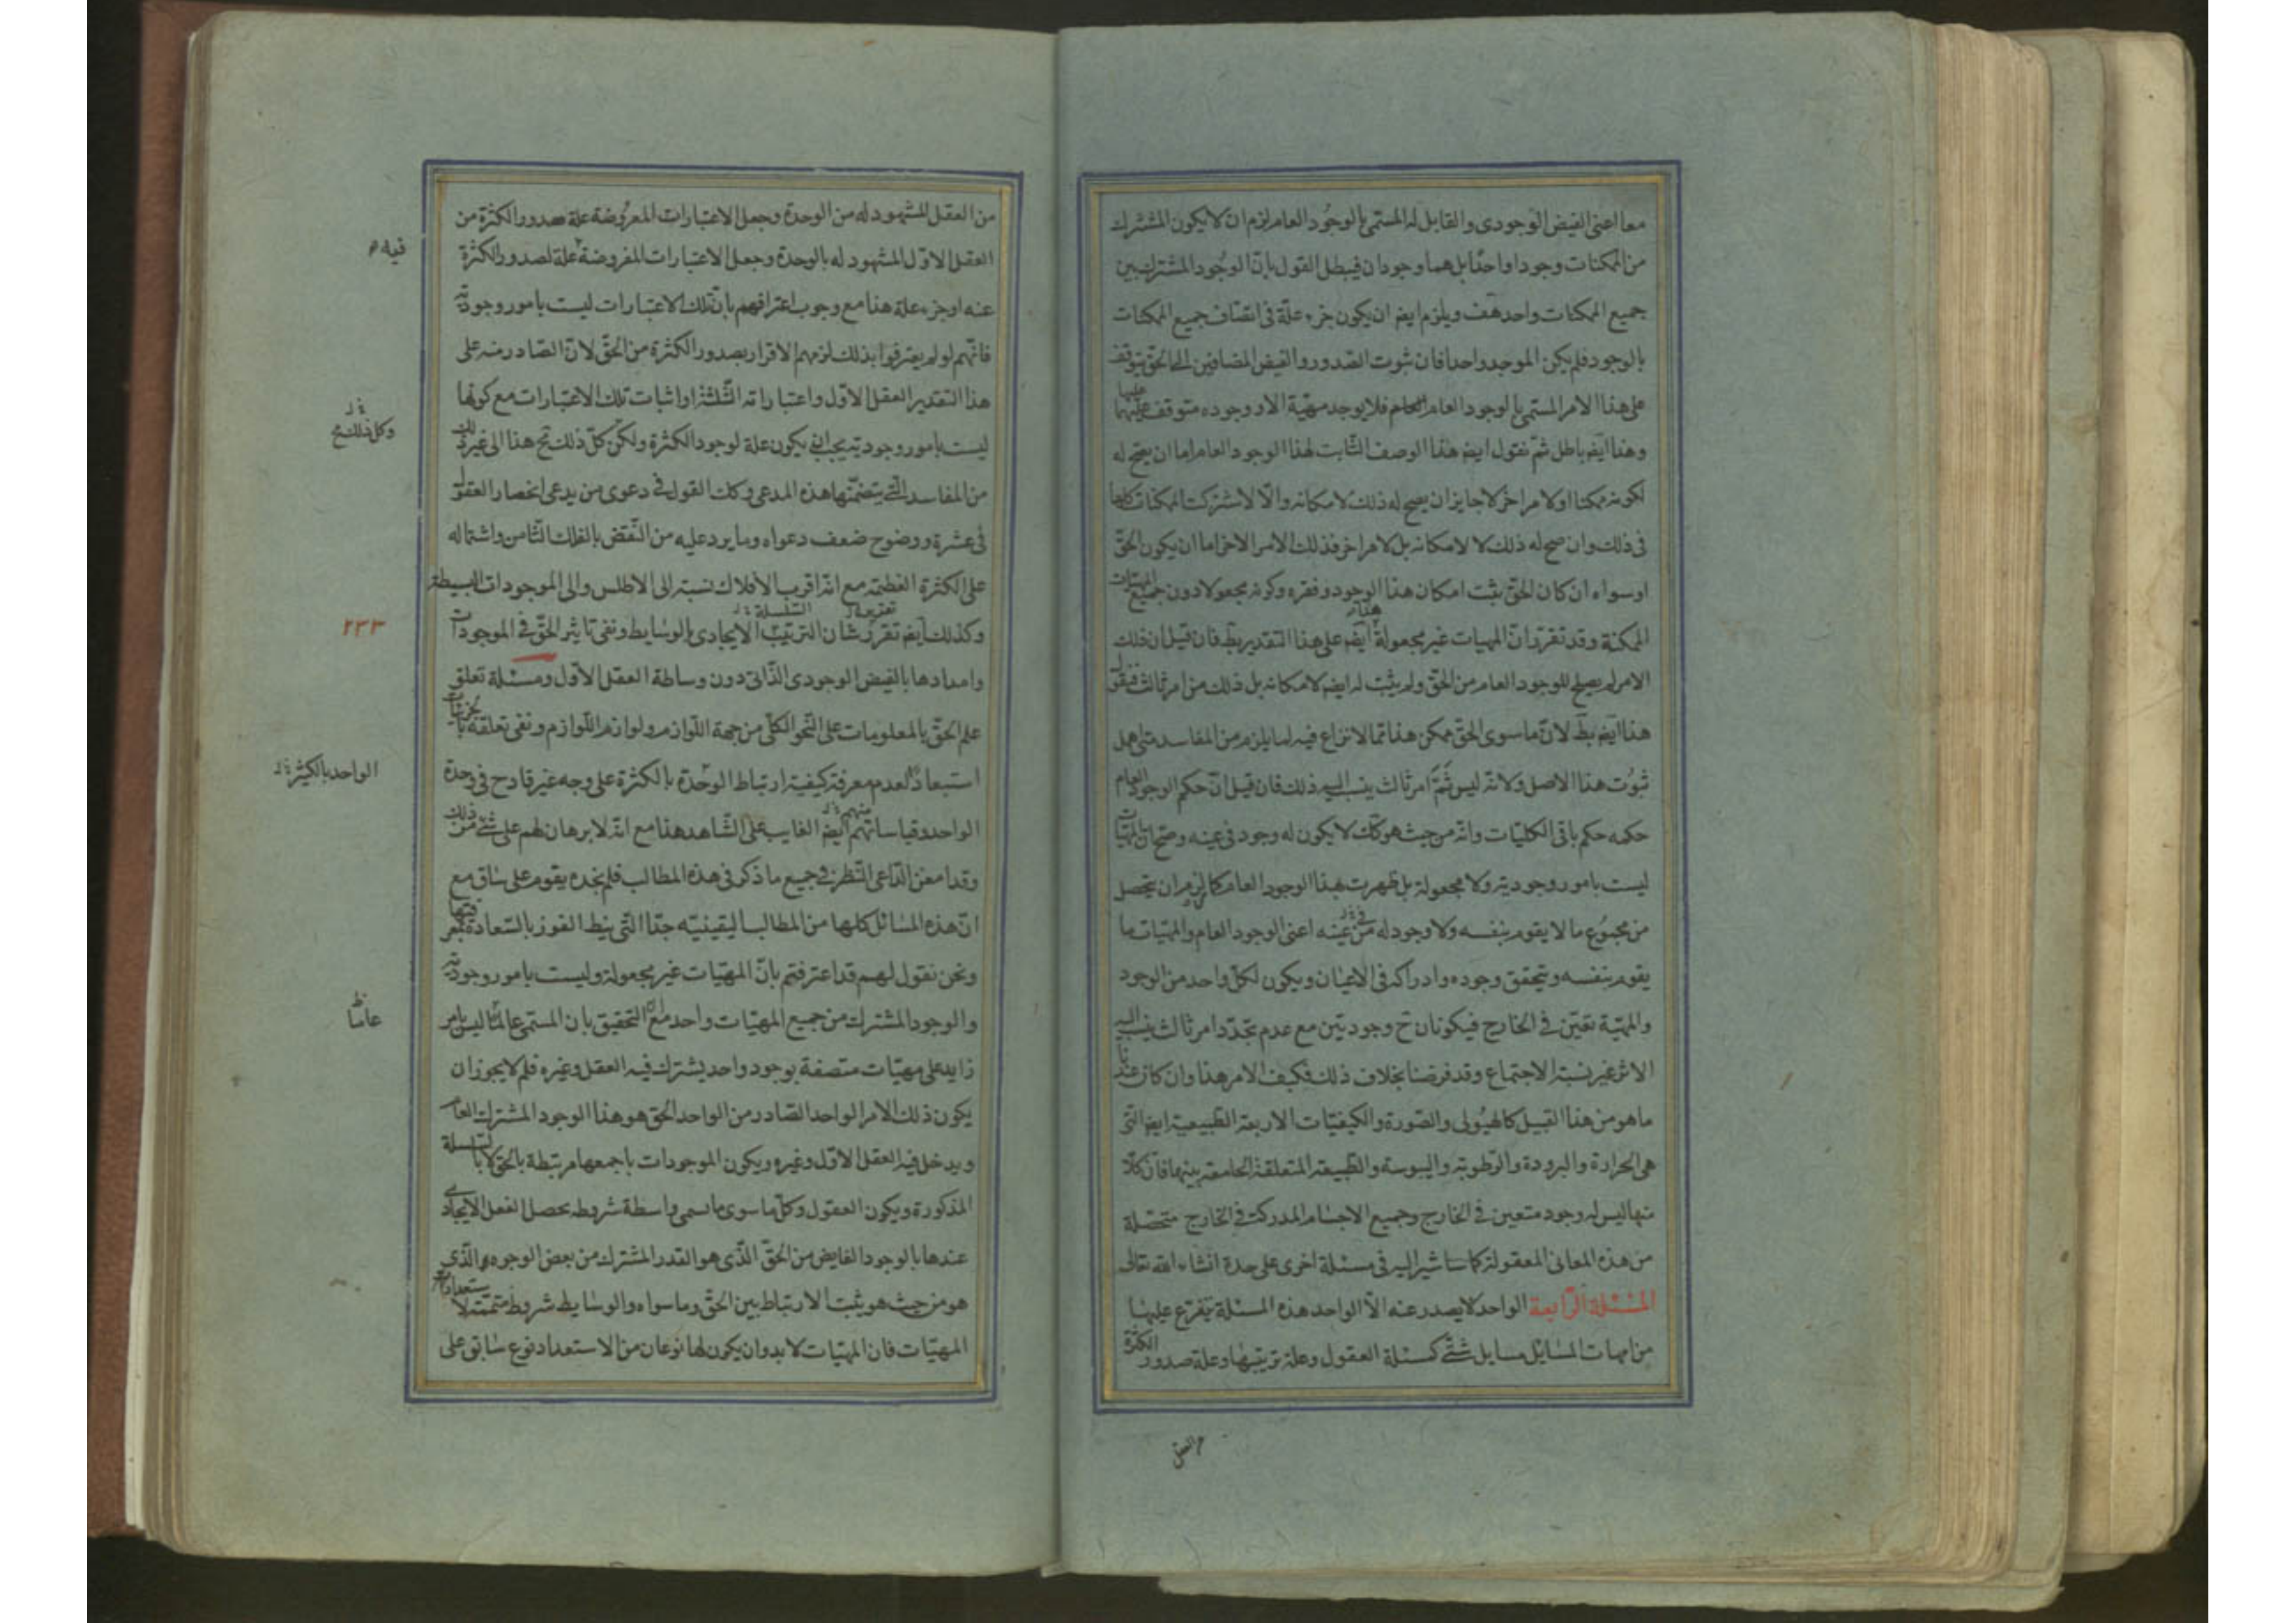 معا اعنى الفيض الوجودى والقابل له المسمى بالوجود العام لزم ان لا يكون المشترك
من المكنات وجودا واحدا بل هما وجودان فيبطل القول بان الوجود المشترك بين
جميع الممكنات واحد هف ويلزم ايضا ان يكون جزء علة فى اتصاف جميع الممكنات
بالوجود فلم يكن الموجد واحدا فان ثبوت الصدور والفيض المضافين الى الحق يتوقف
على هذا الامر المسمى بالوجود العام فلا يوجد مهية الا ووجوده متوقف عليها
وهذا ايضا باطل ثم نقول ايضا هذا الوصف الثابت لهذا الوجود العام اما ان يصح له
لكونه ممكنا او لامر اخر لا جايز ان يصح له ذلك لامكانه والا لاشتركت الممكنات كلها
فى ذلك وان صح له ذلك لا لامكانه بل لامر اخر فذلك الامر الاخر اما ان يكون الحق
او سواه ان كان الحق يثبت امكان هذا الوجود وفقره وكونه مجعولا دون جميع المهيات
الممكنة وقد تقرر ان المهيات غير مجعولة ايضا على هذا التقدير بط فان قيل ان ذلك
الامر لم يصح للوجود العام من الحق ولم يثبت له ايضا لامكانه بل ذلك من امر ثالث فنقول
هذا ايضا بط لان ما سوى الحق ممكن هذا مما لا نزاع فيه لما يلزم من المفاسد متى اهمل
ثبوت هذا الاصل ولانه ليس ثم امر ثالث ينسب اليه ذلك فان قيل ان حكم الوجود العام
حكمه حكم باقى الكليات وانه من حيث هو كك لا يكون له وجود فى عينه وصح ان المهيات
ليست بامور وجودية ولا مجعولة بل ظهرت بهذا الوجود العام كما لزم ان يتحصل
من مجموع ما لا يقوم بنفسه ولا وجود له من عينه اعنى الوجود العام والمهيات ما
يقوم بنفسه ويتحقق وجوده وادراكه فى الاعيان ويكون لكل واحد من الوجود
والمهية تعين فى الخارج فيكونان ح وجوديين مع عدم تجدد امر ثالث ينسب اليه
الاثر غير نسبة الاجتماع وقد فرضنا بخلاف ذلك فكيف الامر هذا وان كان عندنا
ما هو من هذا القبيل كالهيولى والصورة والكيفيات الاربعة الطبيعية ايضا التى
هى الحرارة والبرودة والرطوبة واليبوسة والطبيعة المتعلقة الجامعة بينهما فان كلا
منها ليس له وجود متعين فى الخارج وجميع الاجسام المدركة فى الخارج متحصلة
من هذه المعانى المعقولة كما سأشير اليه فى مسئلة اخرى على حدة انشاء الله تعالى
المسئلة الرابعة الواحد لا يصدر عنه الا الواحد هذه المسئلة يتفرع عليها
من امهات المسايل مسايل شتى كمسئلة العقول وعلة ترتيبها وعلة صدور الكثرة
من العقل المشهود له من الوحدة وجعل الاعتبارات المعروضة علة صدور الكثرة من
العقل الاول المشهود له بالوحدة وجعل الاعتبارات المفروضة علة لصدور الكثرة
فيه
عنه او جزء علة هذا مع وجوب اعترافهم بان تلك الاعتبارات ليست بامور وجودية
فانهم لو لم يعترفوا بذلك لزمهم الاقرار بصدور الكثرة من الحق لان الصادر منه على
هذا التقدير العقل الاول واعتباراته الثلثة او اثبات تلك الاعتبارات مع كونها
ليست بامور وجودية يجب ان يكون علة لوجود الكثرة ولكن كل ذلك مح هذا الى غير ذلك
وكل ذلك مح
من المفاسد التى يتضمنها هذه المدعى وكك القول فى دعوى من يدعى انحصار العقول
فى عشرة ووضوح ضعف دعواه وما يرد عليه من النقض بالفلك الثامن واشتماله
على الكثرة العظيمة مع انه اقرب الافلاك نسبة الى الاطلس والى الموجودات البسيطة
وكذلك ايضا تقرر شان الترتيب الايجادى بالوسايط ونفى تاثير الحق فى الموجودات
٢٣٣
وامدادها بالفيض الوجودى الذاتى دون وساطة العقل الاول ومسئلة تعلق
علم الحق بالمعلومات على النحو الكلى من جهة اللوازم ولوازم اللوازم ونفى تعلقه بالجزئيات
استبعادا لعدم معرفة كيفية ارتباط الوحدة بالكثرة على وجه غير قادح فى وحدة
الواحد بالكثير
الواحد وقياساتهم ايضا الغايب على الشاهد هذا مع انه لا برهان لهم على شئ من ذلك
وقد امعن الداعى النظر فى جميع ما ذكر فى هذه المطالب فلم نجده يقوم على ساق مع
ان هذه المسائل كلها من المطالب اليقينيه جدا التى نيط الفوز بالسعادة بمعرفتها
ونحن نقول لهم قد اعترفتم بان المهيات غير مجعولة وليست بامور وجودية
والوجود المشترك من جميع المهيات واحد مع التحقيق بان المسمى عالما ليس بامر
زايد على مهيات متصفة بوجود واحد يشترك فيه العقل وغيره فلم لا يجوز ان
يكون ذلك الامر الواحد الصادر من الواحد الحق هو هذا الوجود المشترك العام
ويدخل فيه العقل الاول وغيره ويكون الموجودات باجمعها مرتبطة بالحق لا بالسلسلة
المذكورة ويكون العقول وكل ما سوى ما سمى واسطة شروطه يحصل الفعل الايجادى
عندها بالوجود الفايض من الحق الذى هو القدر المشترك من بعض الوجوه والذى
هو من حيث هو يثبت الارتباط بين الحق وما سواه والوسايط شروط متممة لاستعدادات
المهيات فان المهيات لا بد وان يكون لها نوعان من الاستعداد نوع سابق على